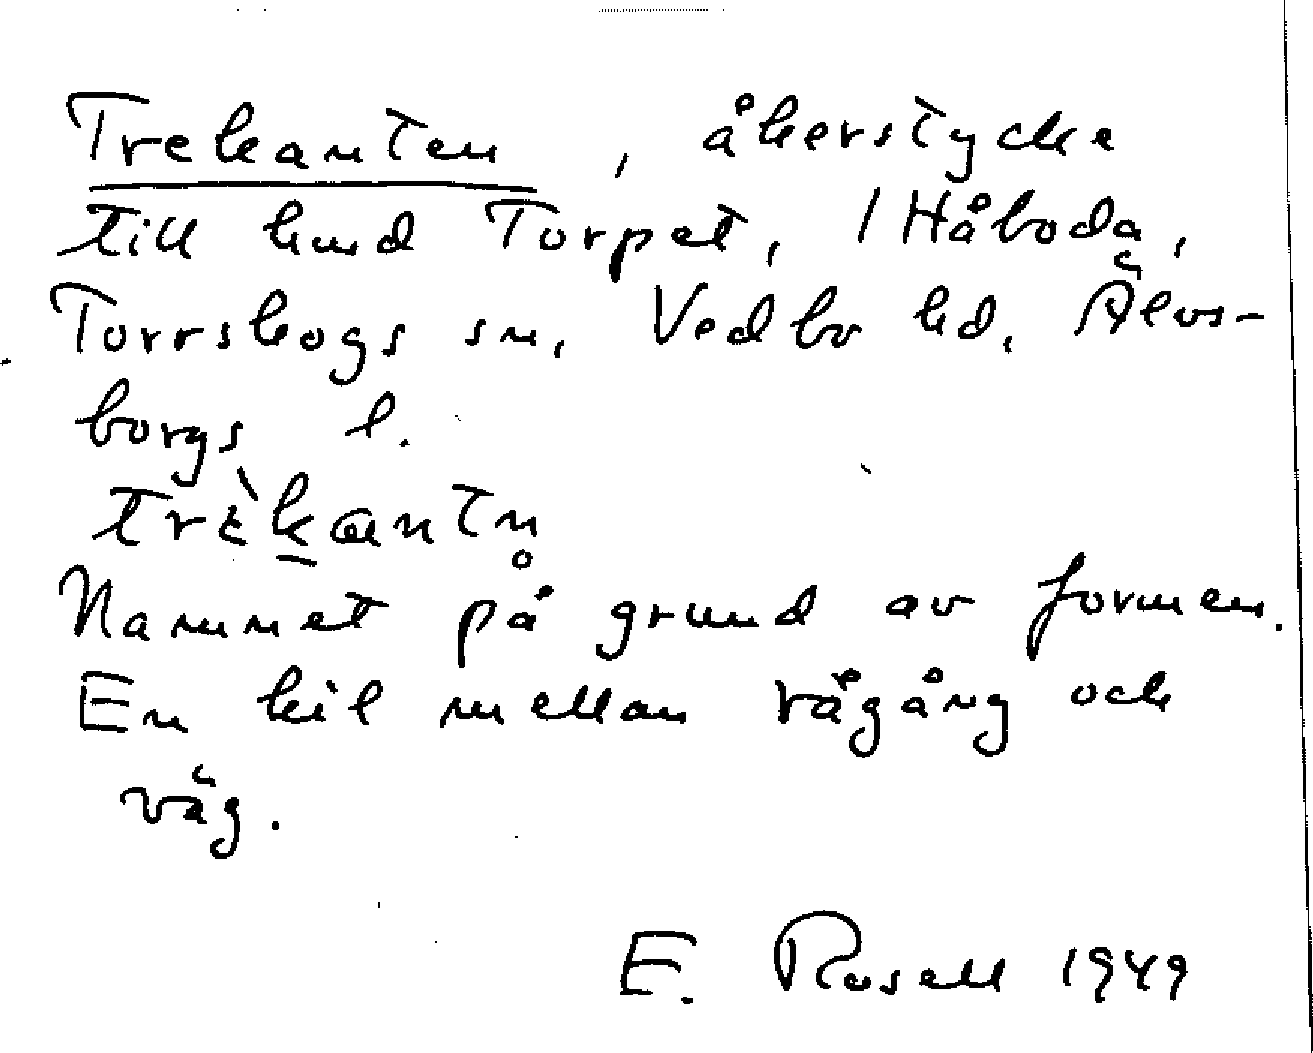 Trekanten, åkerstycke
till hmd Torpet, 1 Håboda,
Torrskogs sn, Vedbo hd, Älvs-
borgs l.
trὲkantn̥
Namnet på grund av formen.
En kil mellan rågång och
väg.
E. Rosell 1949